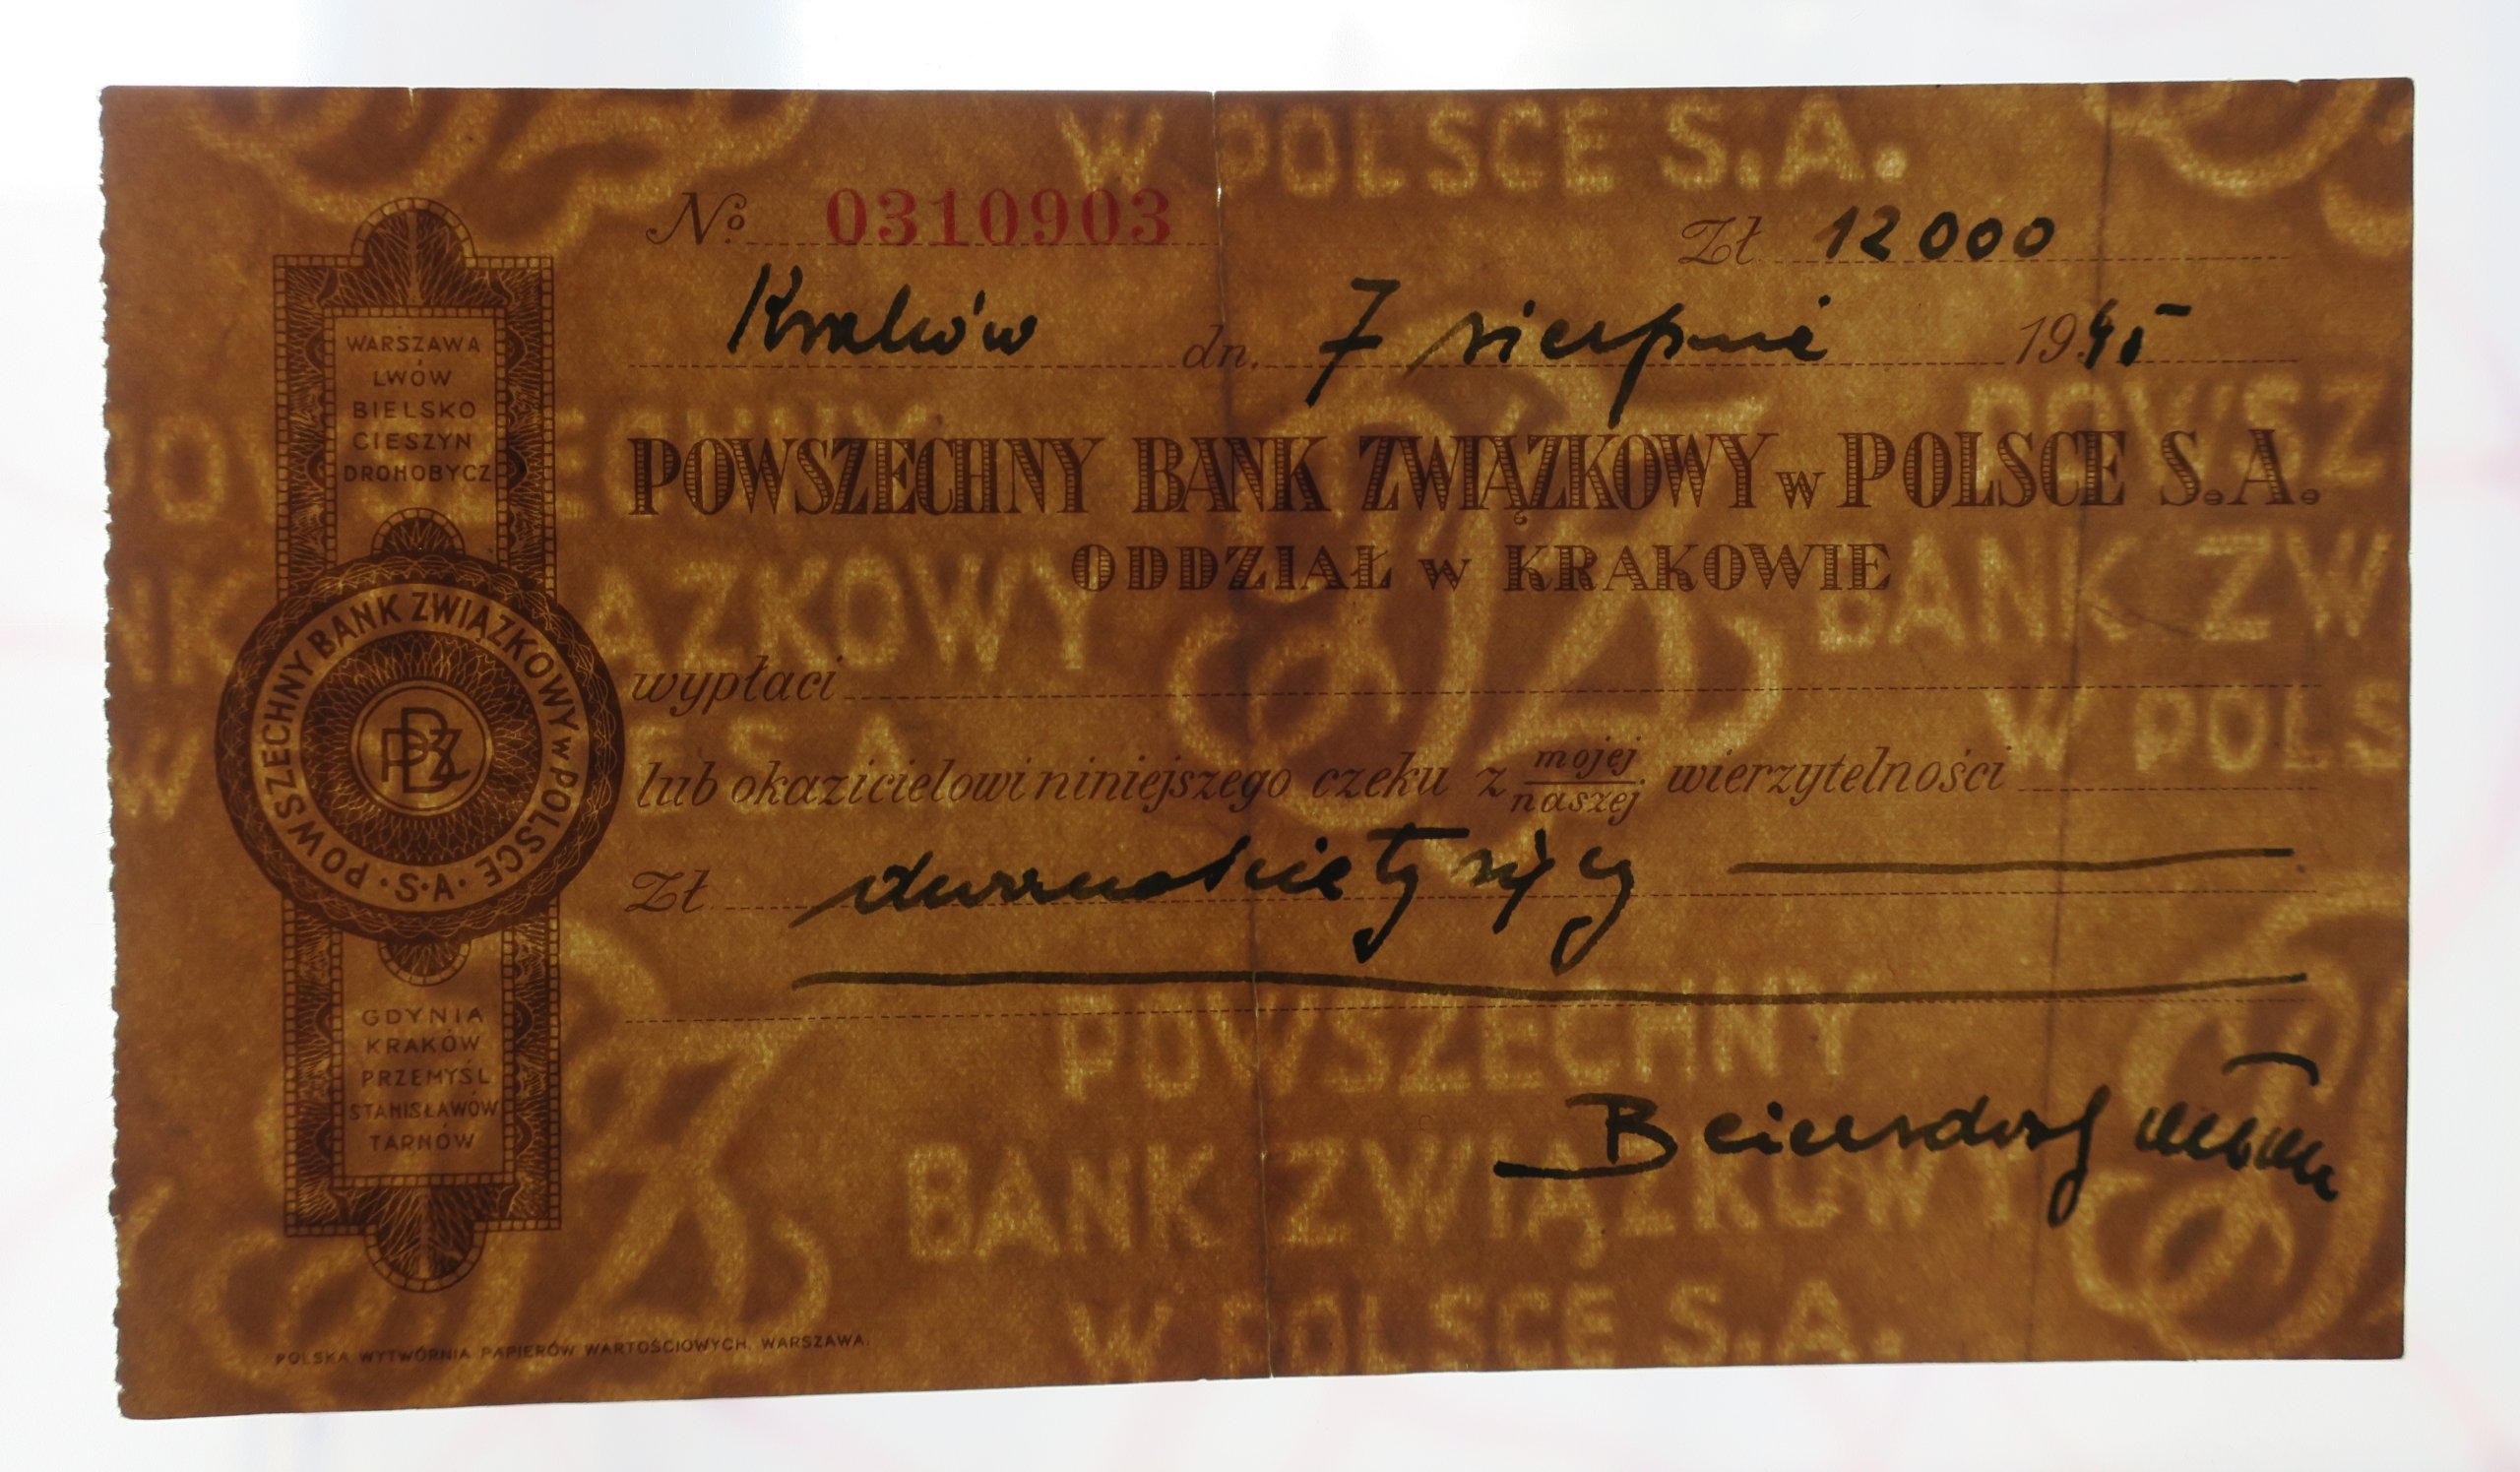 W POLSCE S.A.
No. 0310903
Zł 12 000
Kraków dn. 7 sierpnia 1945
POWSZECHNY BANK ZWIĄZKOWY w POLSCE S.A.
ODDZIAŁ w KRAKOWIE
wypłaci
lub okazicielowi niniejszego czeku z mojej/naszej wierzytelności
Zł dwanaście tysięcy
Beiersdorf
WARSZAWA
LWÓW
BIELSKO
CIESZYN
DROHOBYCZ
POWSZECHNY BANK ZWIĄZKOWY w POLSCE · S·A·
PBZ
GDYNIA
KRAKÓW
PRZEMYŚL
STANISŁAWÓW
TARNÓW
POWSZECHNY
BANK ZWIĄZKOWY
W POLSCE S.A.
POWSZ
BANK ZW
W POLS
POWSZECHNY
NK ZWIĄZKOWY
W POLSCE S.A.
POLSKA WYTWÓRNIA PAPIERÓW WARTOŚCIOWYCH, WARSZAWA.